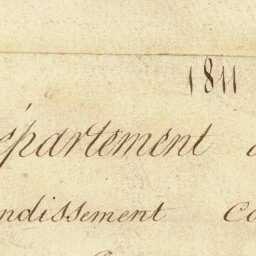 1811
épartement
ndissement Co